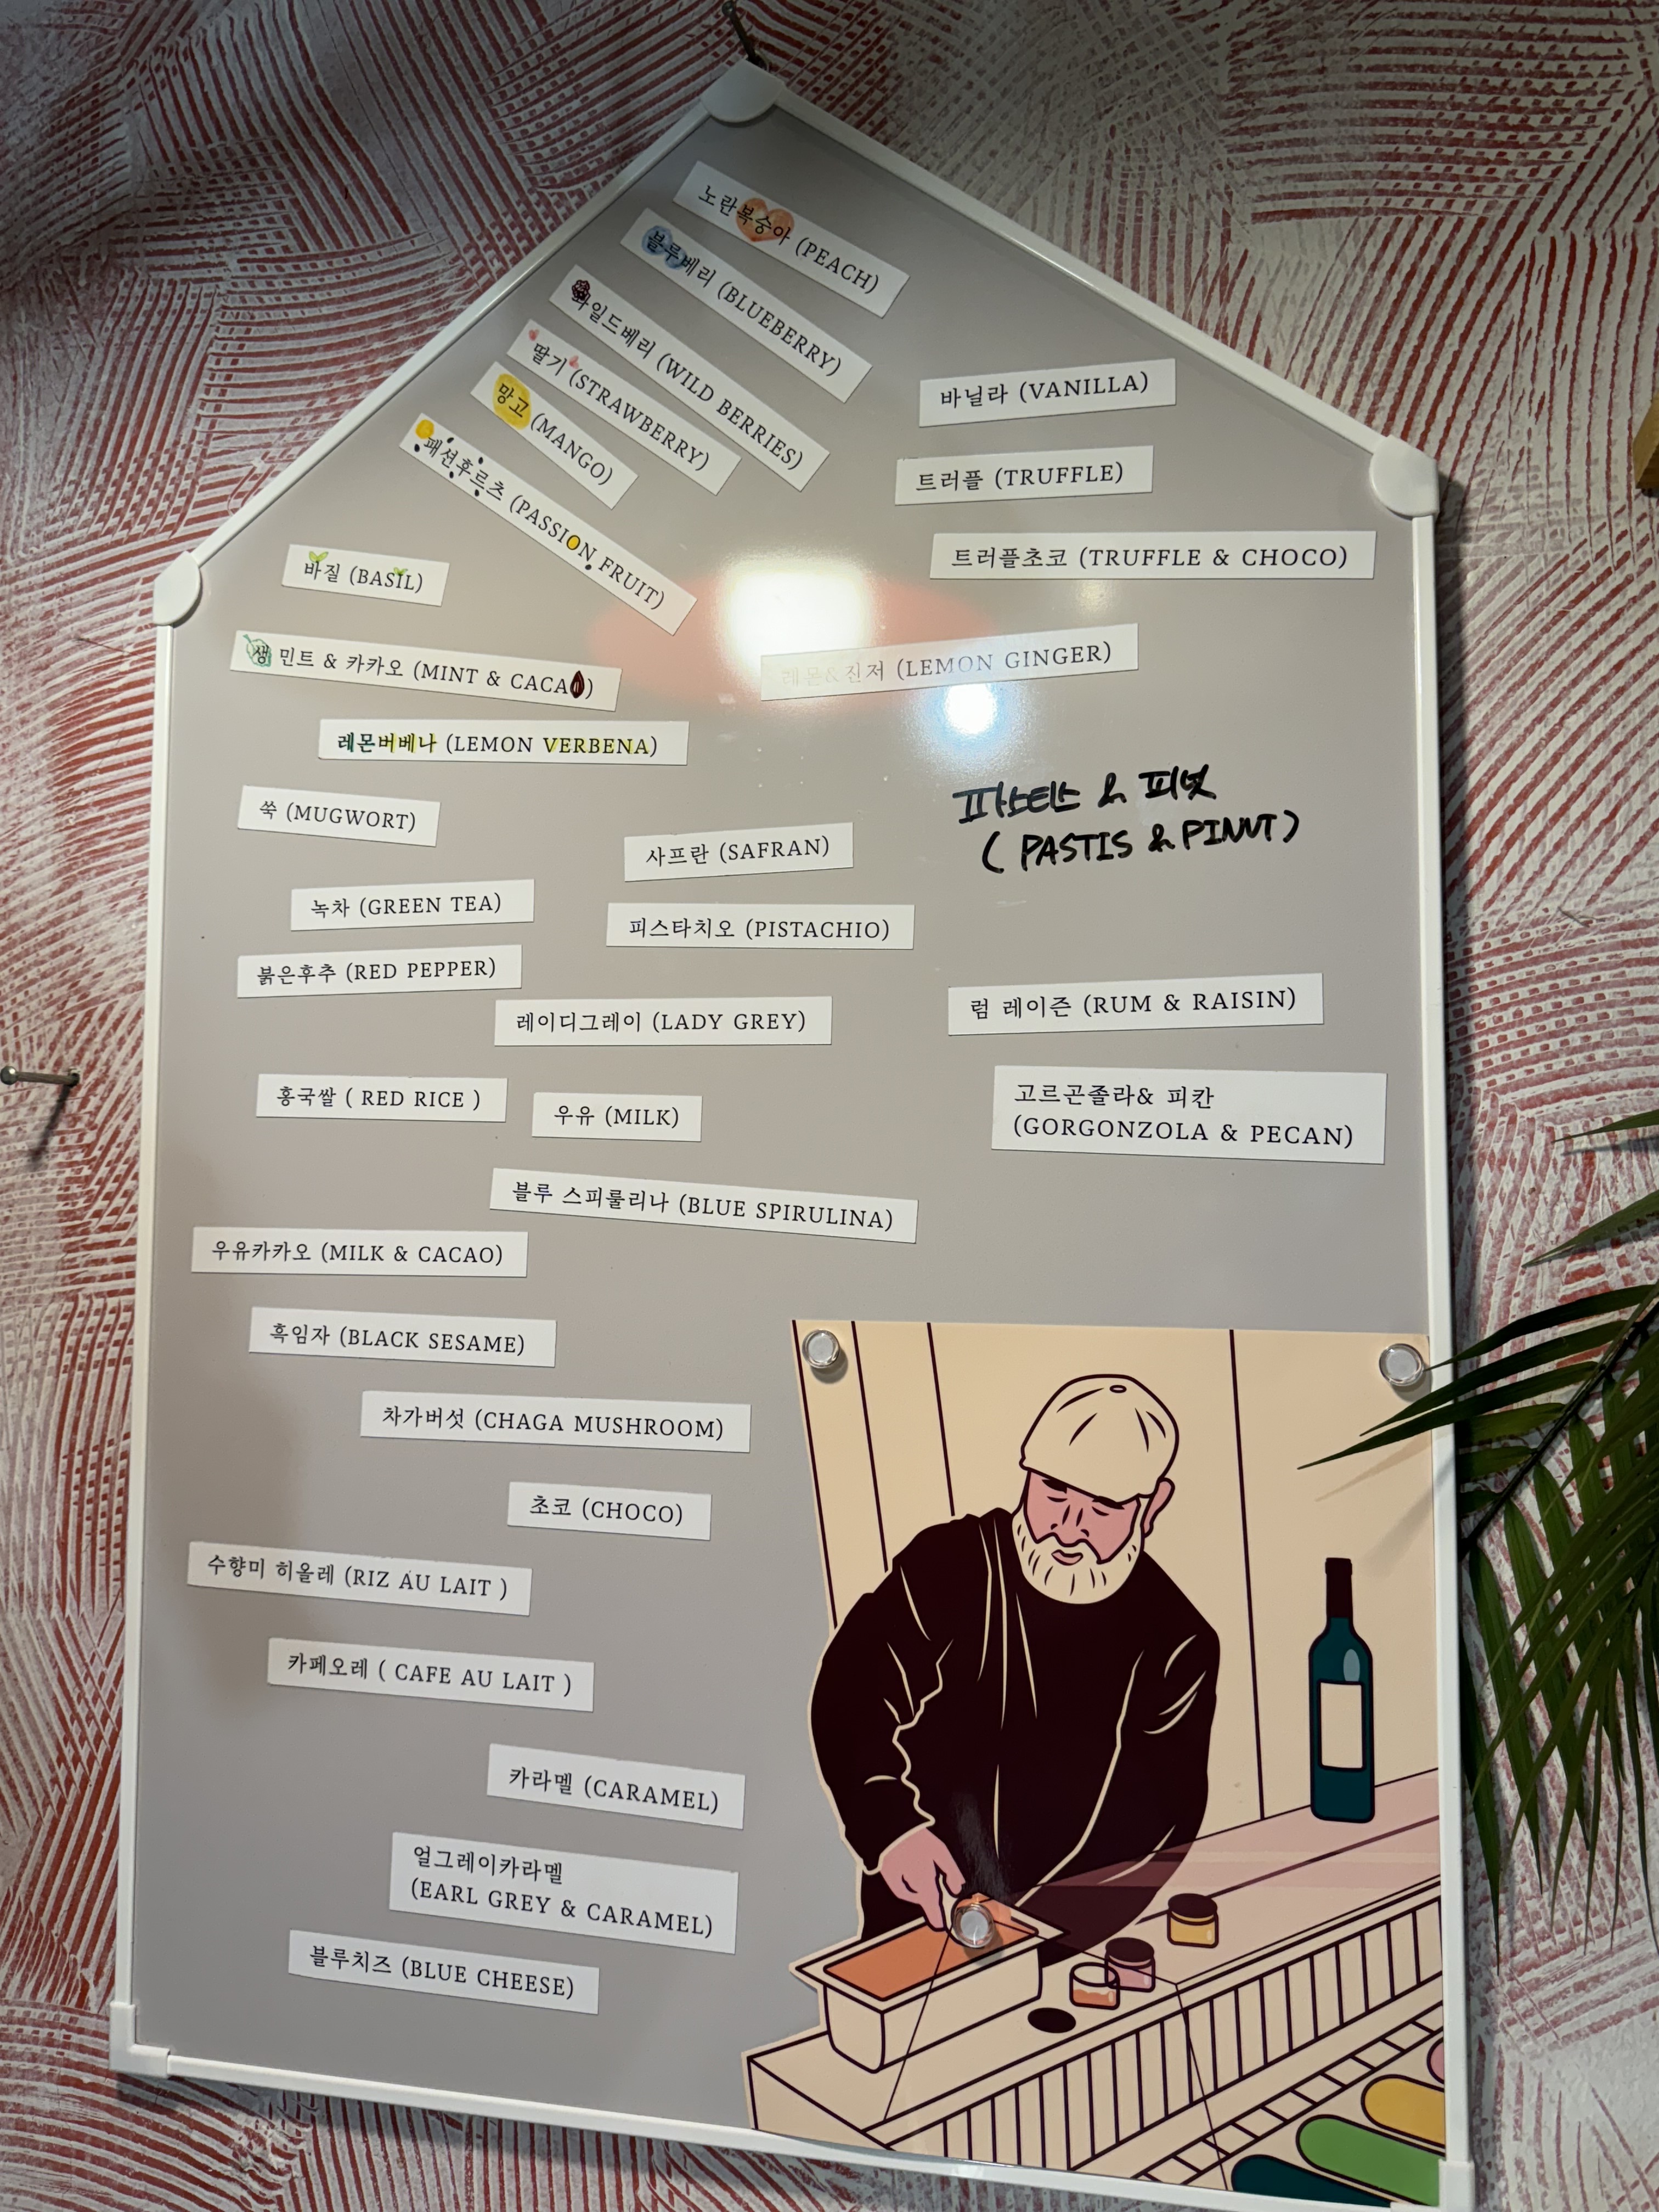 노란복숭아 (PEACH)
블루베리 (BLUEBERRY)
와일드베리 (WILD BERRIES)
딸기 (STRAWBERRY)
망고 (MANGO)
패션후르츠 (PASSION FRUIT)
바닐라 (VANILLA)
트러플 (TRUFFLE)
트러플초코 (TRUFFLE & CHOCO)
바질 (BASIL)
생 민트 & 카카오 (MINT & CACAO)
레몬&진저 (LEMON GINGER)
레몬버베나 (LEMON VERBENA)
쑥 (MUGWORT)
파스티스 & 피넛
( PASTIS & PINUT )
사프란 (SAFRAN)
녹차 (GREEN TEA)
피스타치오 (PISTACHIO)
붉은후추 (RED PEPPER)
레이디그레이 (LADY GREY)
럼 레이즌 (RUM & RAISIN)
홍국쌀 ( RED RICE )
우유 (MILK)
고르곤졸라& 피칸
(GORGONZOLA & PECAN)
블루 스피룰리나 (BLUE SPIRULINA)
우유카카오 (MILK & CACAO)
흑임자 (BLACK SESAME)
차가버섯 (CHAGA MUSHROOM)
초코 (CHOCO)
수향미 히올레 (RIZ AU LAIT )
카페오레 ( CAFE AU LAIT )
카라멜 (CARAMEL)
얼그레이카라멜
(EARL GREY & CARAMEL)
블루치즈 (BLUE CHEESE)